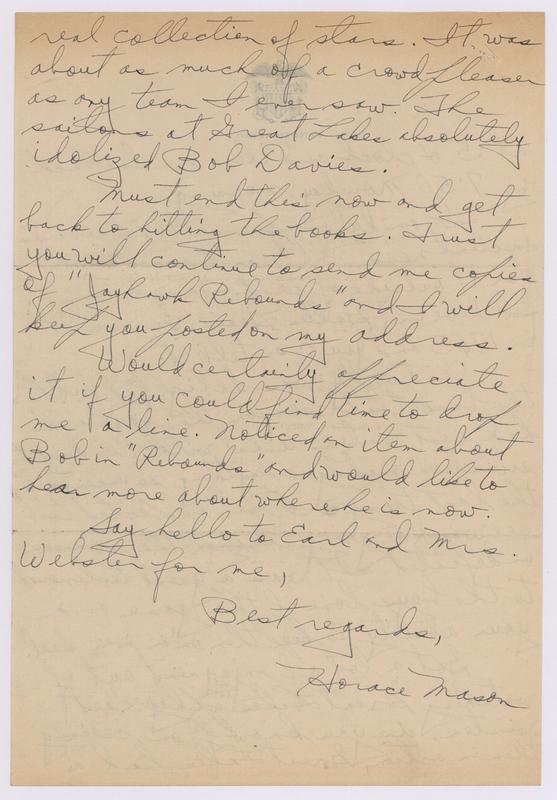 real collection of stars. It was
about as much of a crowd pleaser
as any team I ever saw. The
sailors at Great Lakes absolutely
idolized Bob Davies.
Must end this now and get
back to hitting the books. Trust
you will continue to send me copies
of "Jayhawk Rebounds" and I will
keep you posted on my address.
Would certainly appreciate
it if you could find time to drop
me a line. Noticed an item about
Bob in "Rebounds" and would like to
hear more about where he is now.
Say hello to Earl and Mrs.
Webster for me,
Best regards,
Horace Mason